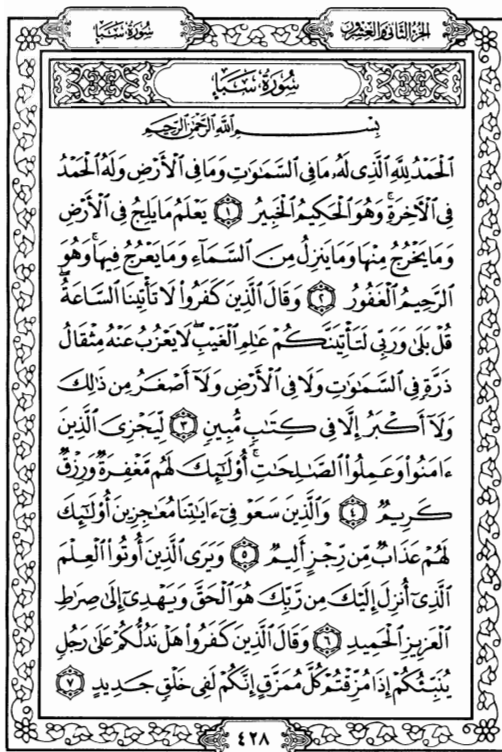 الجزء الثاني والعشرون
سُورَةُ سَبَأٍ
سُورَةُ سَبَأٍ
بِسْمِ اللَّهِ الرَّحْمَٰنِ الرَّحِيمِ
الْحَمْدُ لِلَّهِ الَّذِي لَهُ مَا فِي السَّمَاوَاتِ وَمَا فِي الْأَرْضِ وَلَهُ الْحَمْدُ
فِي الْآخِرَةِ ۚ وَهُوَ الْحَكِيمُ الْخَبِيرُ ١ يَعْلَمُ مَا يَلِجُ فِي الْأَرْضِ
وَمَا يَخْرُجُ مِنْهَا وَمَا يَنزِلُ مِنَ السَّمَاءِ وَمَا يَعْرُجُ فِيهَا ۚ وَهُوَ
الرَّحِيمُ الْغَفُورُ ٢ وَقَالَ الَّذِينَ كَفَرُوا لَا تَأْتِينَا السَّاعَةُ ۖ
قُلْ بَلَىٰ وَرَبِّي لَتَأْتِيَنَّكُمْ عَالِمِ الْغَيْبِ ۖ لَا يَعْزُبُ عَنْهُ مِثْقَالُ
ذَرَّةٍ فِي السَّمَاوَاتِ وَلَا فِي الْأَرْضِ وَلَا أَصْغَرُ مِن ذَٰلِكَ
وَلَا أَكْبَرُ إِلَّا فِي كِتَابٍ مُّبِينٍ ٣ لِّيَجْزِيَ الَّذِينَ
ءَامَنُوا وَعَمِلُوا الصَّالِحَاتِ ۚ أُولَٰئِكَ لَهُم مَّغْفِرَةٌ وَرِزْقٌ
كَرِيمٌ ٤ وَالَّذِينَ سَعَوْ فِي ءَايَاتِنَا مُعَاجِزِينَ أُولَٰئِكَ
لَهُمْ عَذَابٌ مِّن رِّجْزٍ أَلِيمٌ ٥ وَيَرَى الَّذِينَ أُوتُوا الْعِلْمَ
الَّذِي أُنزِلَ إِلَيْكَ مِن رَّبِّكَ هُوَ الْحَقَّ وَيَهْدِي إِلَىٰ صِرَاطِ
الْعَزِيزِ الْحَمِيدِ ٦ وَقَالَ الَّذِينَ كَفَرُوا هَلْ نَدُلُّكُمْ عَلَىٰ رَجُلٍ
يُنَبِّئُكُمْ إِذَا مُزِّقْتُمْ كُلَّ مُمَزَّقٍ إِنَّكُمْ لَفِي خَلْقٍ جَدِيدٍ ٧
٤٢٨